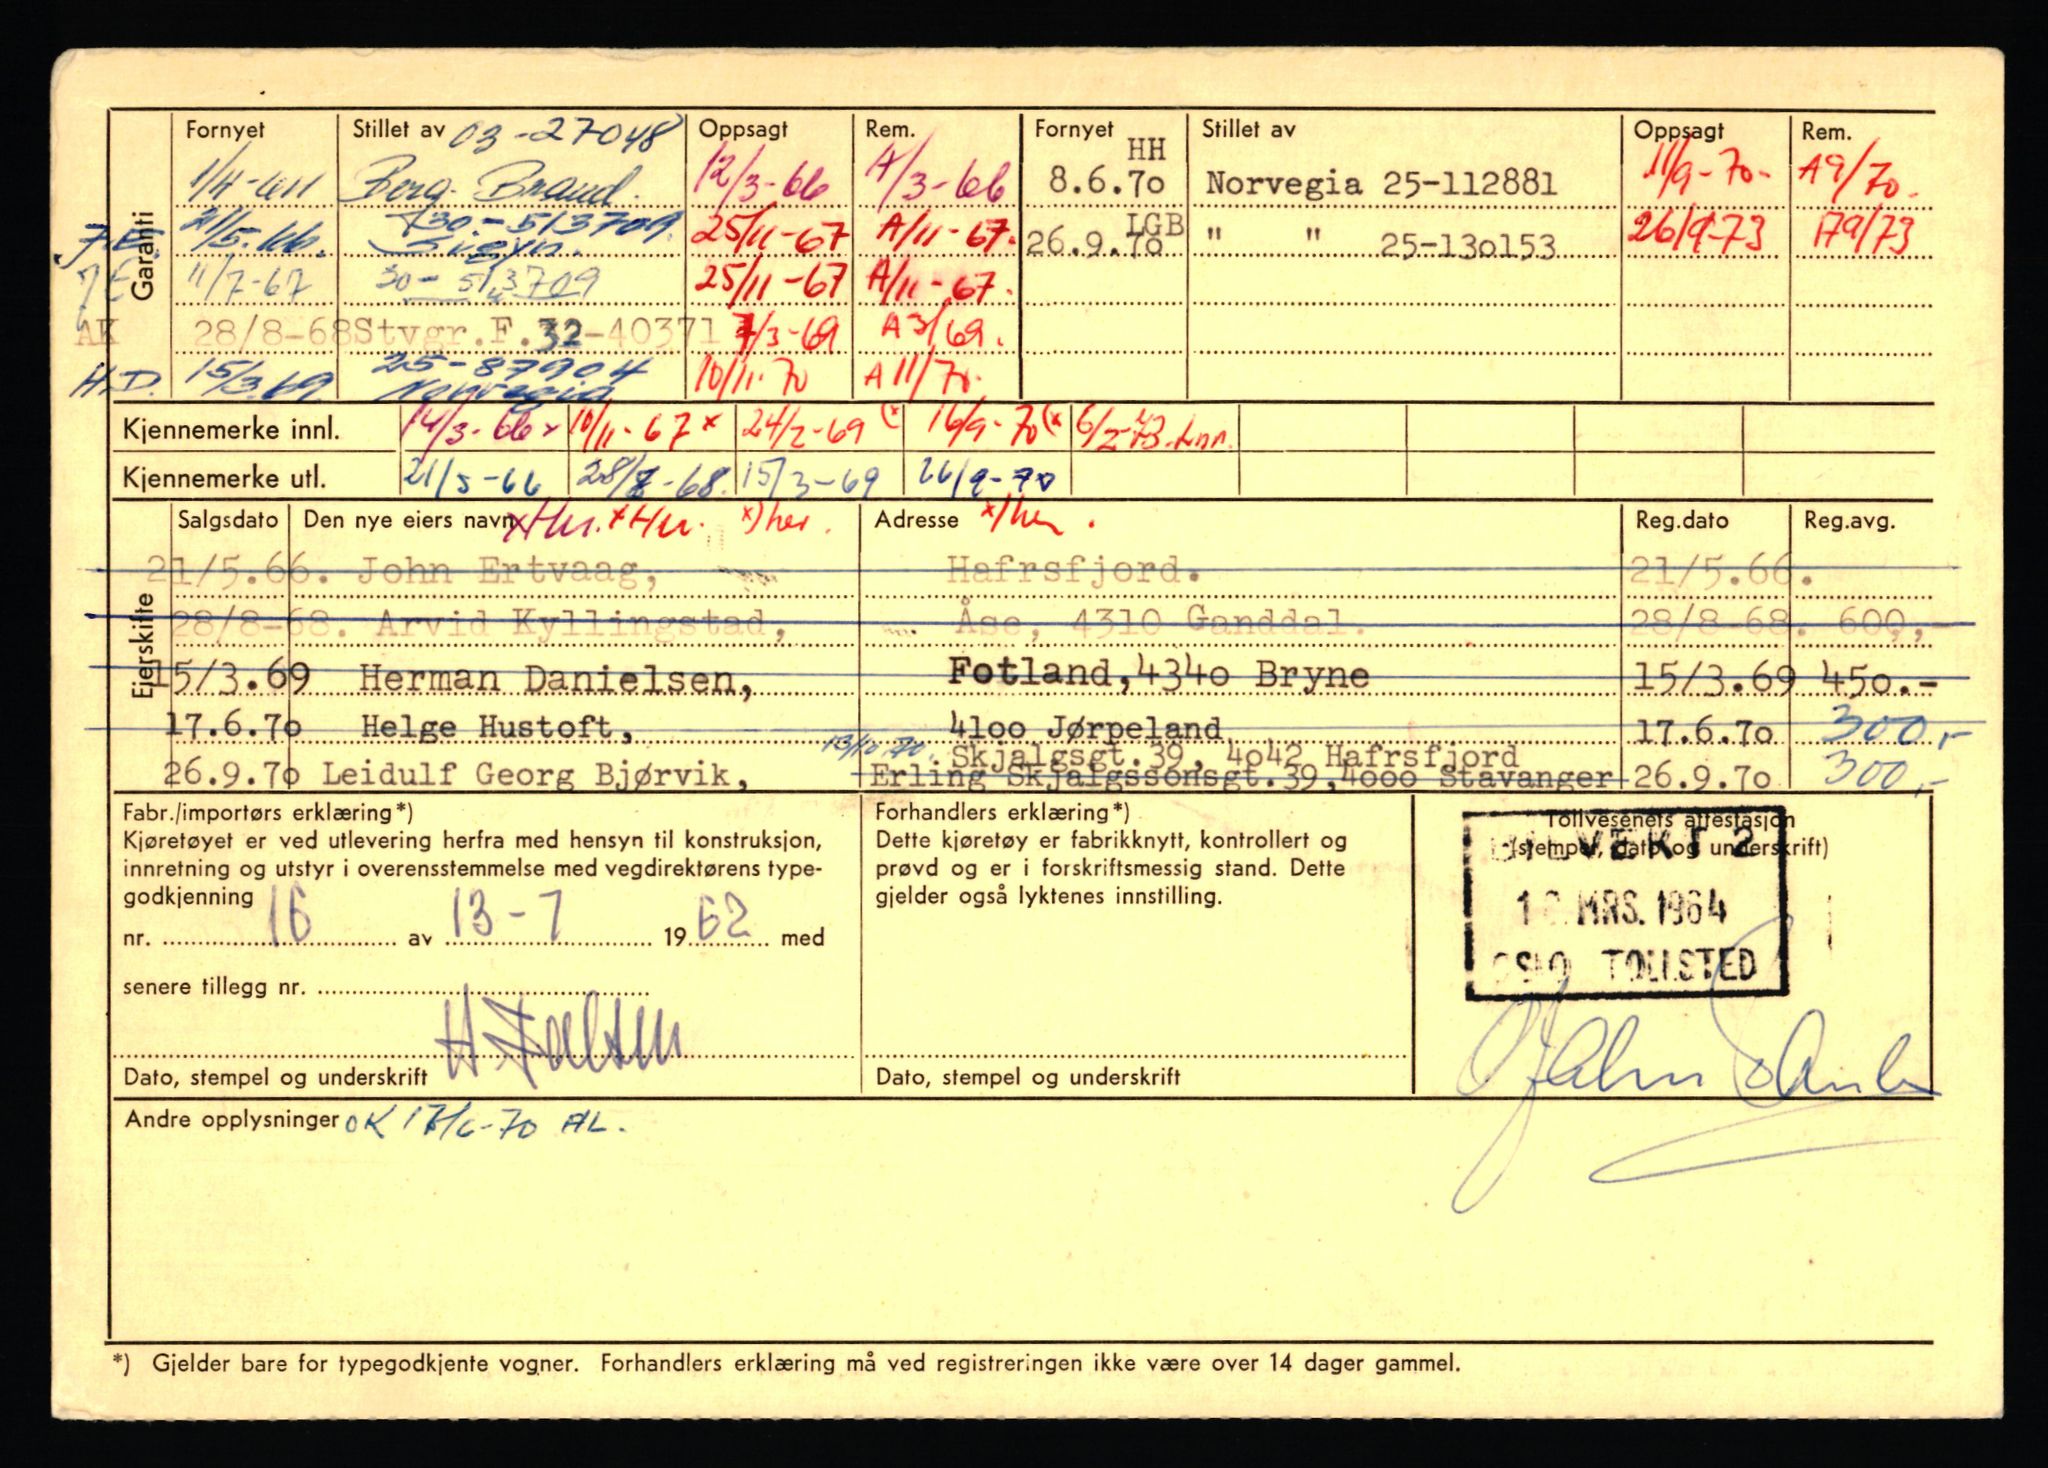 Garanti
Fornyet Stillet av 03-27048 Oppsagt Rem. Fornyet Stillet av Oppsagt Rem.
1/4-64 Berg. Brand. 12/3-66 A/3-66 HH 8.6.70 Norvegia 25-112881 11/9-70- A9/70.
21/5.66. 730.-513709. Sigyn. 25/11-67 A/11-67. LGB 26.9.70 " " 25-130153 26/9-73 179/73
11/7-67 30-513709 25/11-67 A/11-67.
AK 28/8-68 Stvgr.F. 32-40371 7/3-69 A3/69.
H.D. 15/3.69 25-87904 Norvegia 10/11.70 A11/70.
Kjennemerke innl. 14/3-66x 10/11-67x 24/2-69(x 16/9-70(x 6/2-73
Kjennemerke utl. 21/5-66 28/8-68. 15/3-69 26/9-70
Ejerskifte
Salgsdato Den nye eiers navn x) her. Adresse x) her. Reg.dato Reg.avg.
21/5.66. John Ertvaag, Hafrsfjord. 21/5.66.
28/8-68. Arvid Kyllingstad, Åse, 4310 Ganddal. 28/8-68. 600,-
15/3.69 Herman Danielsen, Fotland,4340 Bryne 15/3.69 450.-
17.6.70 Helge Hustoft, 4100 Jørpeland 17.6.70 300,-
13/10.70. Skjalgsgt.39, 4042 Hafrsfjord
26.9.70 Leidulf Georg Bjørvik, Erling Skjalgssonsgt.39,4000 Stavanger 26.9.70 300,-
Fabr./importørs erklæring*)
Kjøretøyet er ved utlevering herfra med hensyn til konstruksjon,
innretning og utstyr i overensstemmelse med vegdirektørens type-
godkjenning
nr. 16 av 13-7 1962 med
senere tillegg nr.
Dato, stempel og underskrift
Forhandlers erklæring*)
Dette kjøretøy er fabrikknytt, kontrollert og
prøvd og er i forskriftsmessig stand. Dette
gjelder også lyktenes innstilling.
Dato, stempel og underskrift
Tollvesenets attestasjon
(stempel, dato og underskrift)
BILVEKT 2
MRS. 1964
OSLO TOLLSTED
Andre opplysninger OK 17/6-70 AL.
*) Gjelder bare for typegodkjente vogner. Forhandlers erklæring må ved registreringen ikke være over 14 dager gammel.